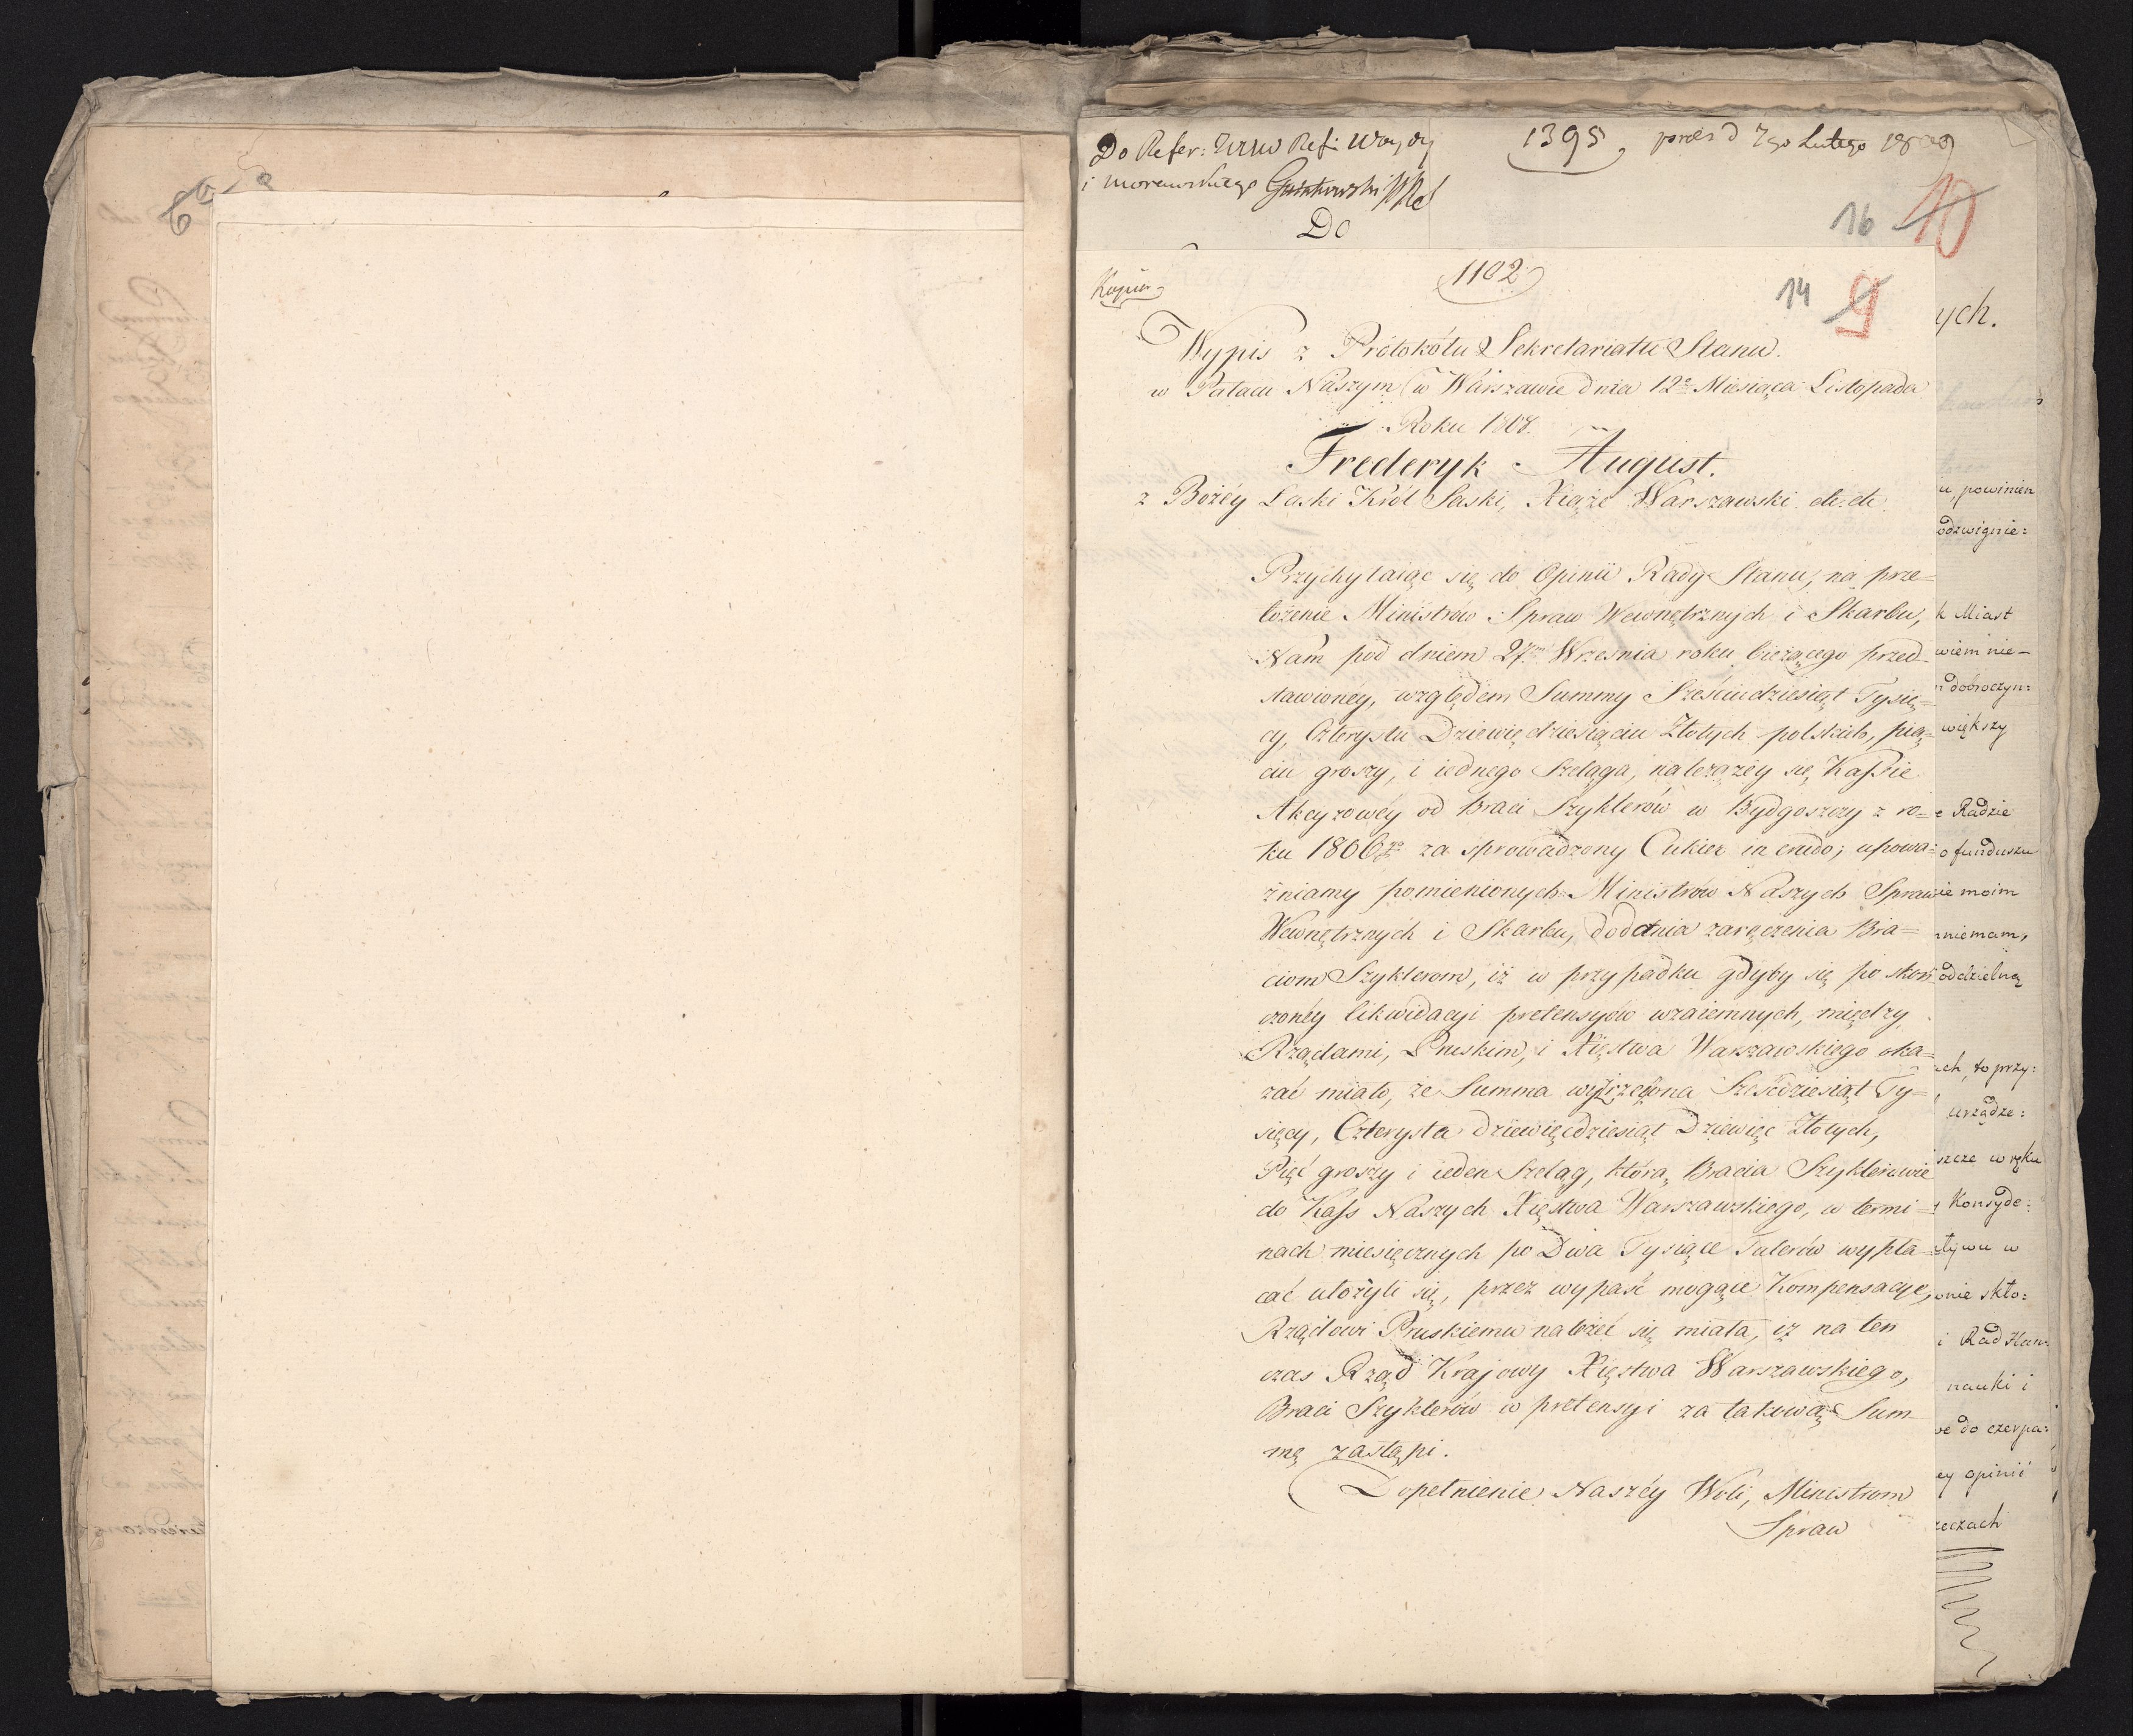 Do Refer:
i Morawskiego
1395, 7go Lutego 1809
16 10
Do
Kopia
1102
14 9
Wypis z Protokółu Sekretariatu Stanu.
w Pałacu Naszym w Warszawie dnia 12º Miesiąca Listopada
Roku 1808.
Frederyk August.
z Bożéy Łaski Król Saski, Xiąże Warszawski. etc. etc.
Przychylaiąc się do Opinii Rady Stanu, na prze=
łożenie Ministrów Spraw Wewnętrznych i Skarbu,
Nam pod dniem 27m Września roku bieżącego przed
stawionéy, względem Summy Sześciudziesiąt Tysię=
cy, Czterystu Dziewiędziesiąciu Złotych polskich, pię=
ciu groszy, i iednego Szeląga, należązéy się Kassie
Akcyzowéy od Braci Szyklerów w Bydgoszczy z ro=
ku 1806go za sprowadzony Cukier in crudo; upowa=
żniamy pomienionych Ministrów Naszych Spraw
Wewnętrznych i Skarbu, do dania zaręczenia Bra=
ciom Szyklerom, iż w przypadku gdyby się po skoń
czonéy likwidacyi pretensyów wzaiemnych, między
Rządami, Pruskim, i Xięstwa Warszawskiego oka=
zać miało, że Summa wyżrzeczona Sześćdziesiąt Ty=
sięcy, Czterysta dziiewięćdziesiąt Dziewięć Złotych,
Pięć groszy i ieden Szeląg, którą, Bracia Szyklerowie
do Kass Naszych Xięstwa Warszawskiego, w termi=
nach miesięcznych po Dwa Tysiące Talerów wypła=
cać ułożyli się, przez wypaść mogące Kompensacye,
Rządowi Pruskiemu należeć się miała, iż na ten
czas Rząd Krajowy Xięstwa Warszawskiego,
Braci Szyklerów w pretensyi za takową Sum
mę zastąpi.
Dopełnienie Naszéy Woli, Ministrom
Spraw
ych.
powinien
odzwignie:
k Miast
wiem nie-
dobroczyn:
większy
Radzie
o funduszu
ie moim
niemam,
oddzielną
ch, to przy:
urządze:
szcze w ręku
Konsyde:
tywu w
onie skło:
i Rad
nauki i
do czerpa:
ey opinii
rzeczach